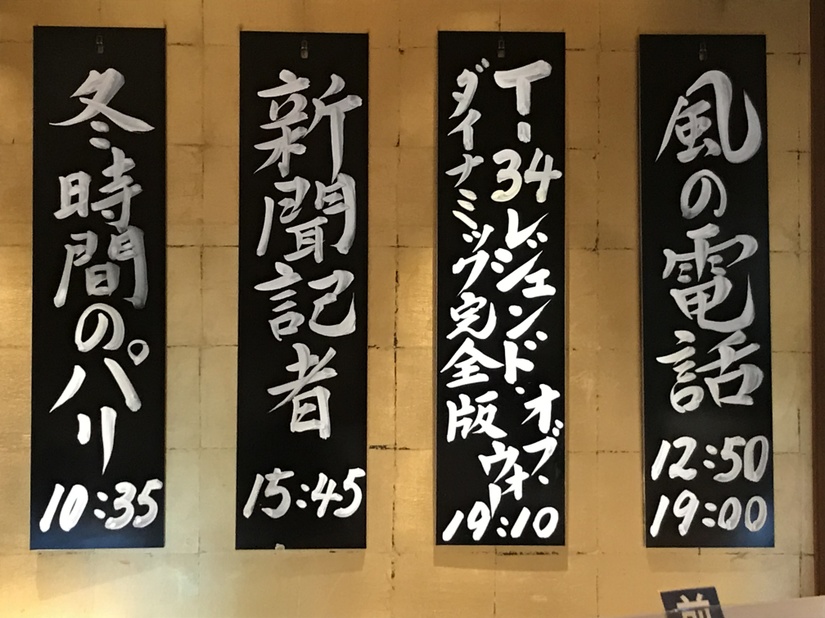 風の電話
12:50
19:00
T-34レジェンド・オブ・ウォー
ダイナミック完全版
19:10
新聞記者
15:45
冬時間のパリ
10:35
前